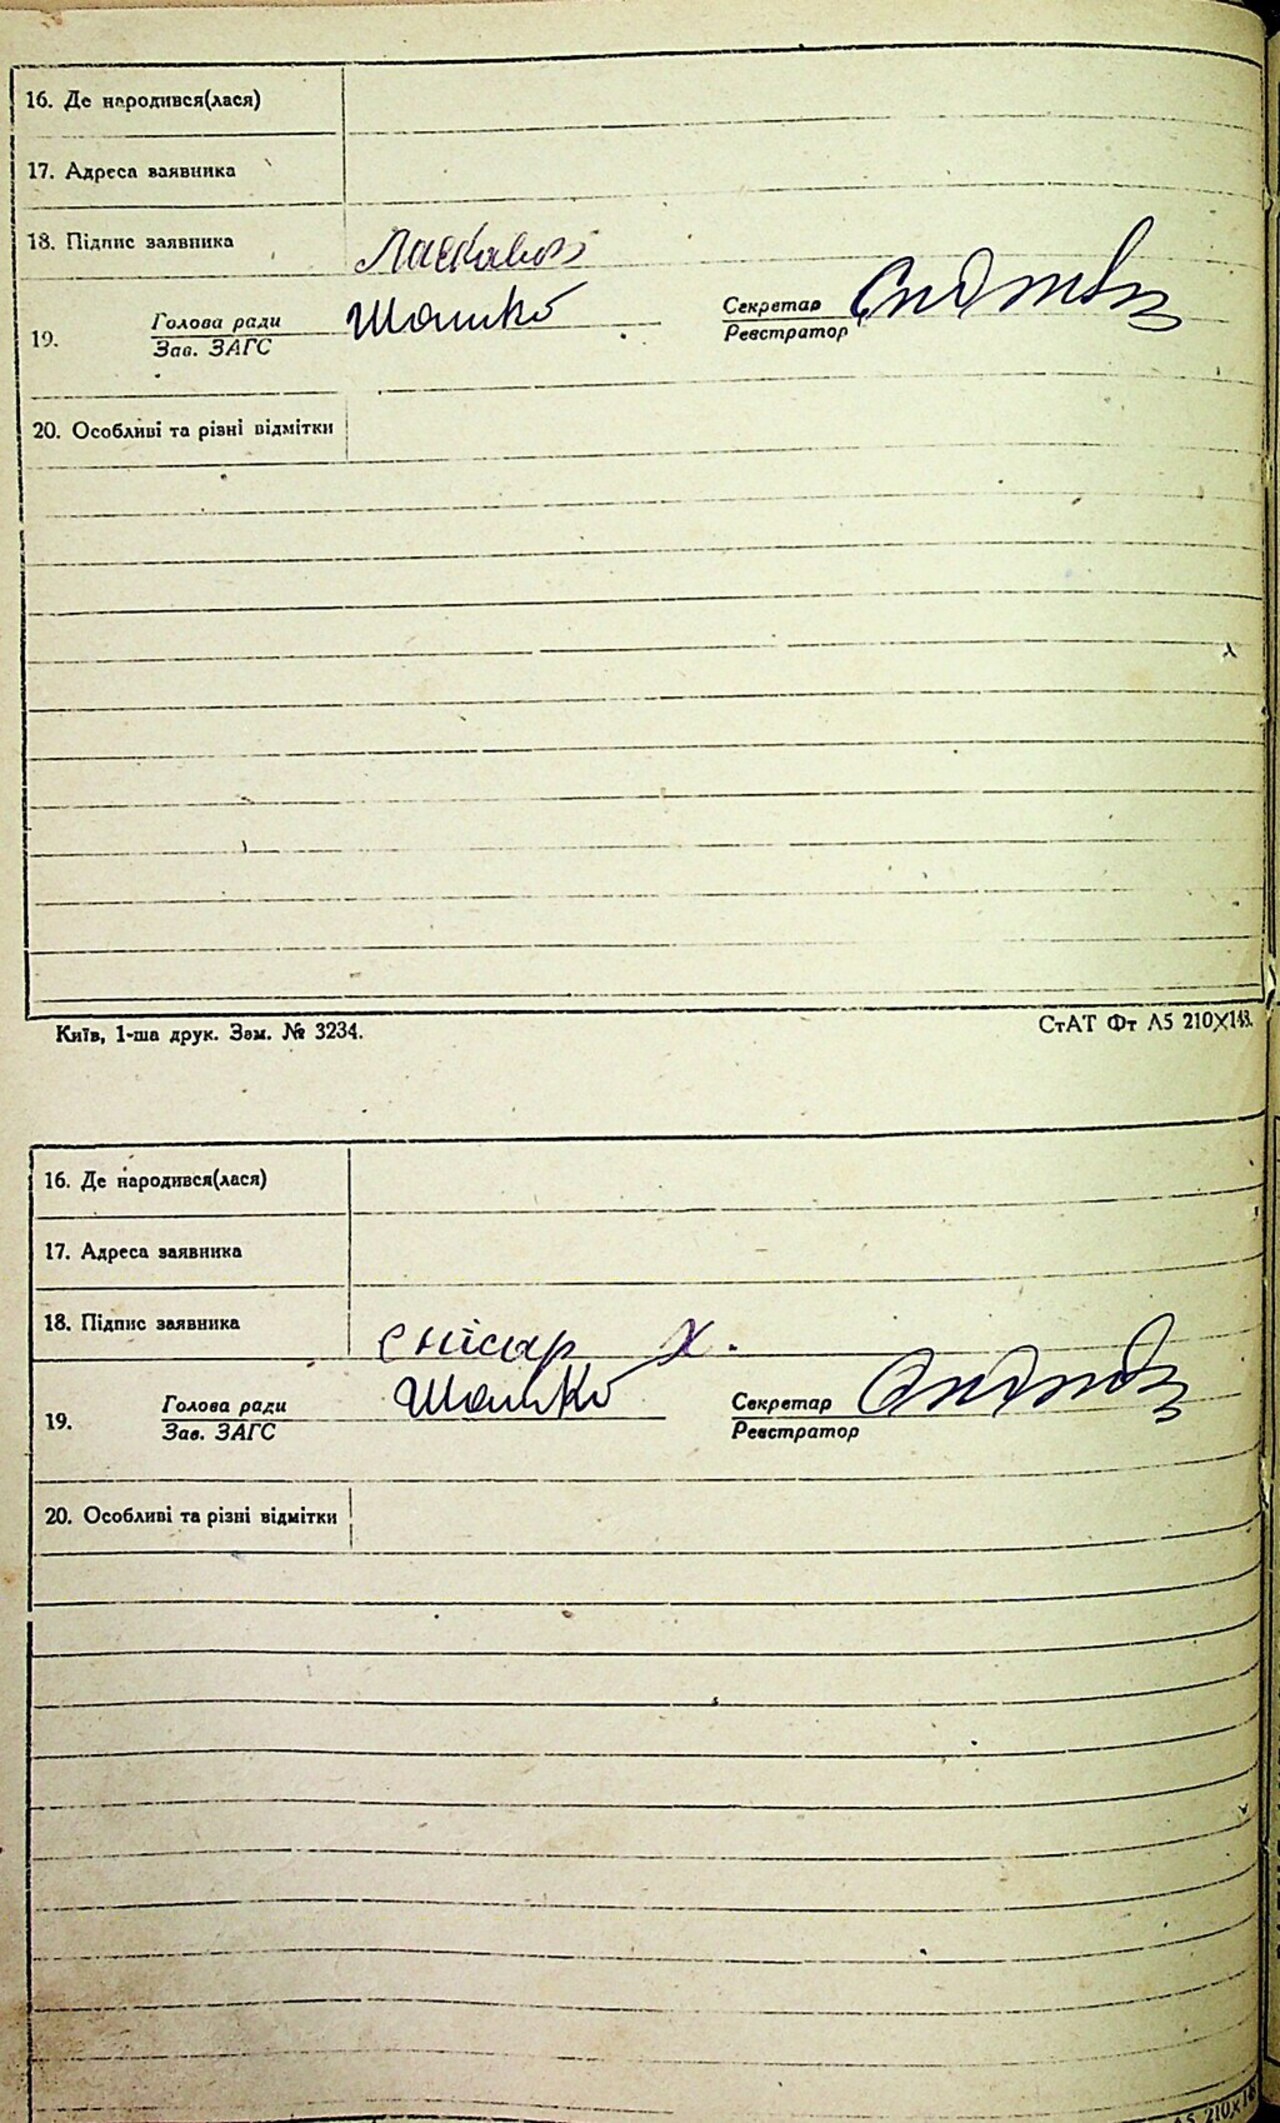 16. Де народився(лася)
17. Адреса заявника
18. Підпис заявника
19. Голова ради Шашко Секретар
Зав. ЗАГС Реєстратор
20. Особливі та різні відмітки
Київ, 1-ша друк. Зам. № 3234. СтАТ Фт А5 210×148.
16. Де народився(лася)
17. Адреса заявника
18. Підпис заявника Снісар Х.
19. Голова ради Шашко Секретар
Зав. ЗАГС Реєстратор
20. Особливі та різні відмітки